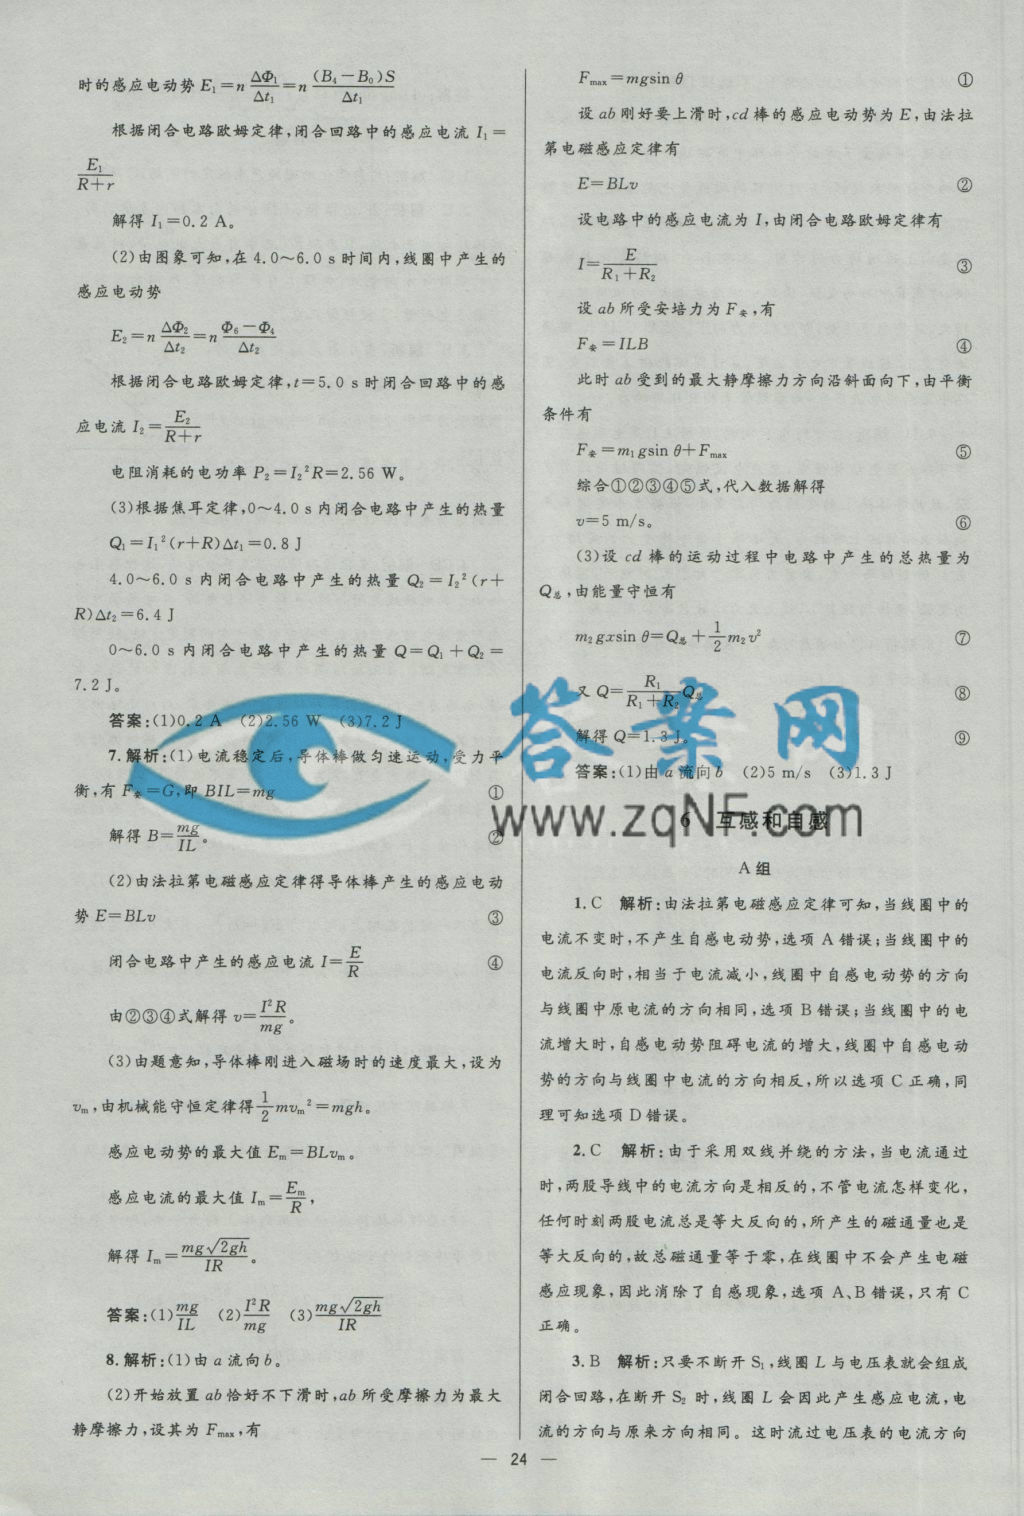 时的感应电动势 E₁=n ΔΦ₁/Δt₁=n (B₄-B₀)S/Δt₁
根据闭合电路欧姆定律,闭合回路中的感应电流 I₁=
E₁/(R+r)
解得 I₁=0.2 A。
(2)由图象可知,在 4.0～6.0 s 时间内,线圈中产生的
感应电动势
E₂=n ΔΦ₂/Δt₂=n (Φ₆-Φ₄)/Δt₂
根据闭合电路欧姆定律,t=5.0 s 时闭合回路中的感
应电流 I₂=E₂/(R+r)
电阻消耗的电功率 P₂=I₂²R=2.56 W。
(3)根据焦耳定律,0～4.0 s 内闭合电路中产生的热量
Q₁=I₁²(r+R)Δt₁=0.8 J
4.0～6.0 s 内闭合电路中产生的热量 Q₂=I₂²(r+
R)Δt₂=6.4 J
0～6.0 s 内闭合电路中产生的热量 Q=Q₁+Q₂=
7.2 J。
答案:(1)0.2 A (2)2.56 W (3)7.2 J
7.解析:(1)电流稳定后,导体棒做匀速运动,受力平
衡,有 F安=G,即 BIL=mg ①
解得 B=mg/IL。 ②
(2)由法拉第电磁感应定律得导体棒产生的感应电动
势 E=BLv ③
闭合电路中产生的感应电流 I=E/R ④
由②③④式解得 v=I²R/mg。
(3)由题意知,导体棒刚进入磁场时的速度最大,设为
vₘ,由机械能守恒定律得 1/2 mvₘ²=mgh。
感应电动势的最大值 Eₘ=BLvₘ。
感应电流的最大值 Iₘ=Eₘ/R,
解得 Iₘ=mg√(2gh)/IR。
答案:(1)mg/IL (2)I²R/mg (3)mg√(2gh)/IR
8.解析:(1)由 a 流向 b。
(2)开始放置 ab 恰好不下滑时,ab 所受摩擦力为最大
静摩擦力,设其为 Fmax,有
Fmax=mgsin θ ①
设 ab 刚好要上滑时,cd 棒的感应电动势为 E,由法拉
第电磁感应定律有
E=BLv ②
设电路中的感应电流为 I,由闭合电路欧姆定律有
I=E/(R₁+R₂) ③
设 ab 所受安培力为 F安,有
F安=ILB ④
此时 ab 受到的最大静摩擦力方向沿斜面向下,由平衡
条件有
F安=m₁gsin θ+Fmax ⑤
综合①②③④⑤式,代入数据解得
v=5 m/s。 ⑥
(3)设 cd 棒的运动过程中电路中产生的总热量为
Q总,由能量守恒有
m₂gxsin θ=Q总+1/2 m₂v² ⑦
又 Q=R₁/(R₁+R₂) Q总 ⑧
解得 Q=1.3 J。 ⑨
答案:(1)由 a 流向 b (2)5 m/s (3)1.3 J
答案网
www.zqNF.com
6 互感和自感
A 组
1.C 解析:由法拉第电磁感应定律可知,当线圈中的
电流不变时,不产生自感电动势,选项 A 错误;当线圈中的
电流反向时,相当于电流减小,线圈中自感电动势的方向
与线圈中原电流的方向相同,选项 B 错误;当线圈中的电
流增大时,自感电动势阻碍电流的增大,线圈中自感电动
势的方向与线圈中电流的方向相反,所以选项 C 正确,同
理可知选项 D 错误。
2.C 解析:由于采用双线并绕的方法,当电流通过
时,两股导线中的电流方向是相反的,不管电流怎样变化,
任何时刻两股电流总是等大反向的,所产生的磁通量也是
等大反向的,故总磁通量等于零,在线圈中不会产生电磁
感应现象,因此消除了自感现象,选项 A、B 错误,只有 C
正确。
3.B 解析:只要不断开 S₁,线圈 L 与电压表就会组成
闭合回路,在断开 S₂ 时,线圈 L 会因此产生感应电流,电
流的方向与原来方向相同。这时流过电压表的电流方向
— 24 —